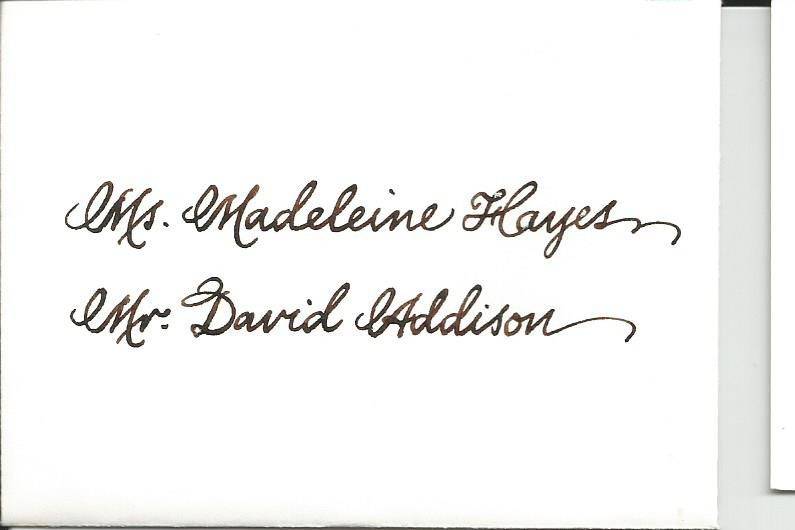 Ms. Madeleine Hayes
Mr. David Addison